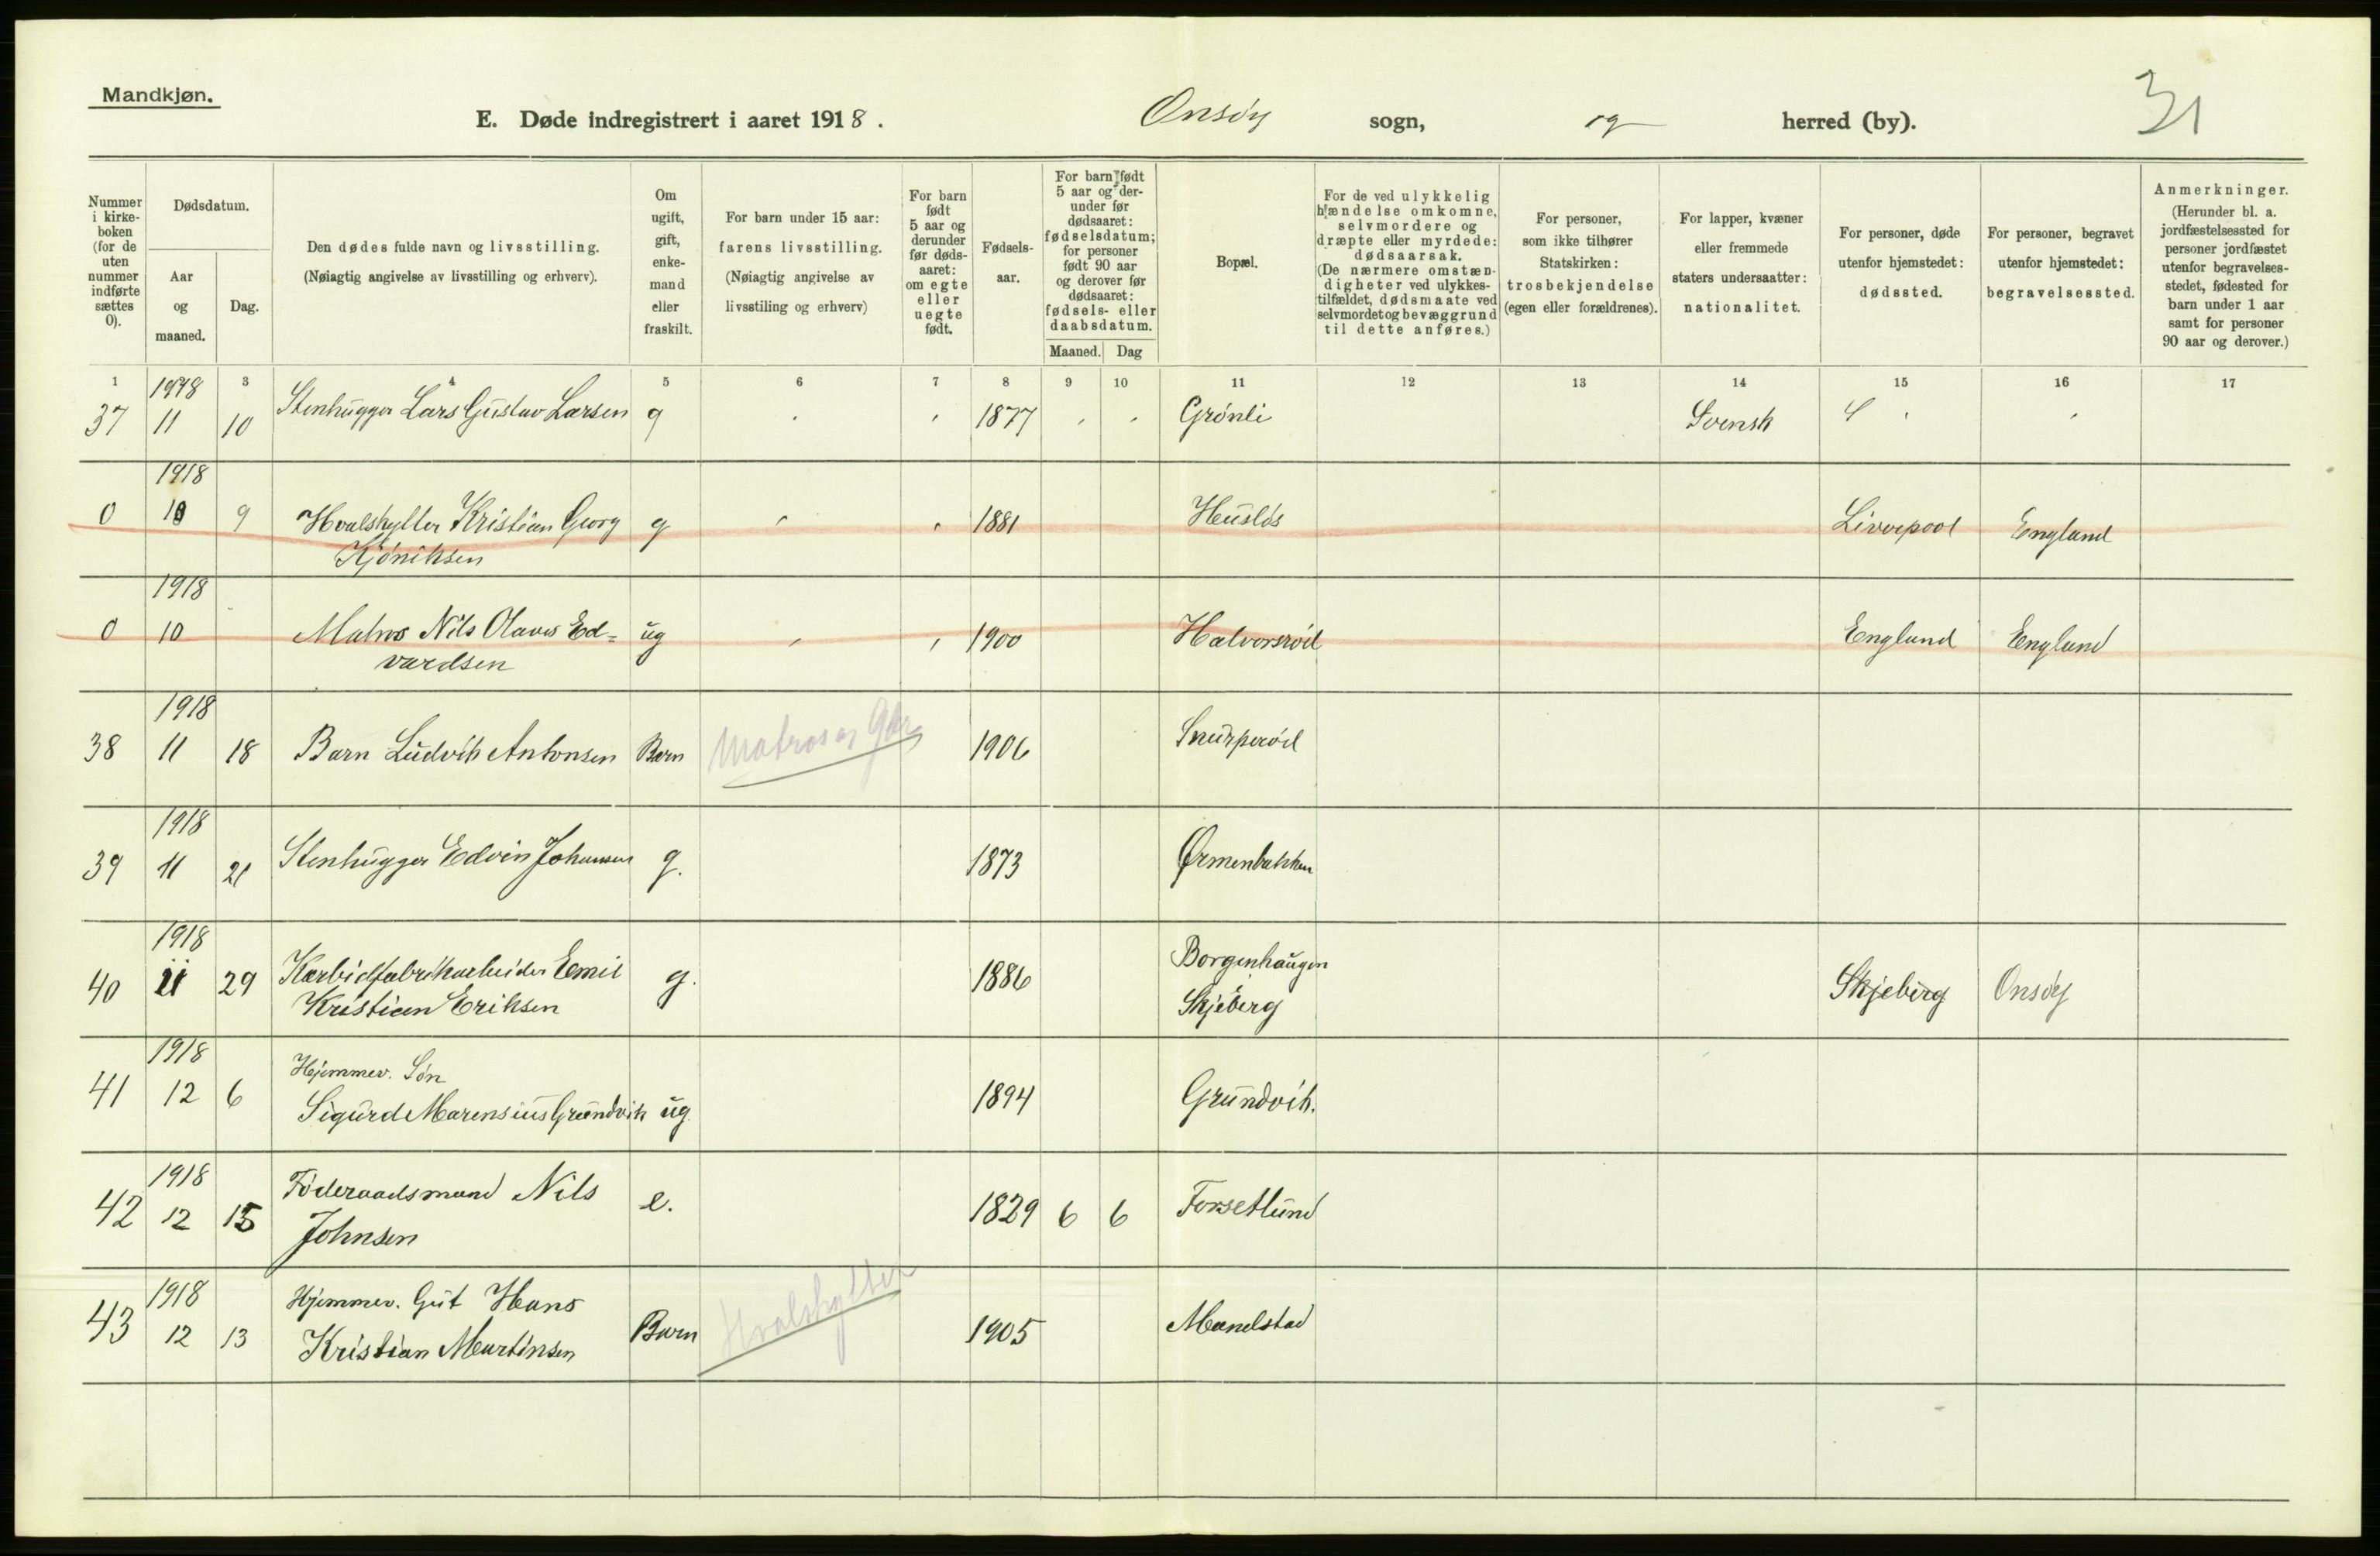 Mandkjøn.
E. Døde indregistrert i aaret 1918.
Onsøy sogn, og herred (by).
31
Nummer i kirke-boken (for de uten nummer indførte sættes 0).
Dødsdatum.
Aar og maaned.
Dag.
Den dødes fulde navn og livsstilling.
(Nøiagtig angivelse av livsstilling og erhverv).
Om ugift, gift, enke-mand eller fraskilt.
For barn under 15 aar: farens livsstilling.
(Nøiagtig angivelse av livsstiling og erhverv)
For barn født 5 aar og derunder før døds-aaret: om egte eller uegte født.
Fødsels-aar.
For barn født 5 aar og der-under før dødsaaret: fødselsdatum; for personer født 90 aar og derover før dødsaaret: fødsels- eller daabsdatum.
Maaned. Dag
Bopæl.
For de ved ulykkelig hændelse omkomne, selvmordere og dræpte eller myrdede: dødsaarsak.
(De nærmere omstæn-digheter ved ulykkes-tilfældet, dødsmaate ved selvmordet og bevæggrund til dette anføres.)
For personer, som ikke tilhører Statskirken: trosbekjendelse (egen eller forældrenes).
For lapper, kvæner eller fremmede staters undersaatter: nationalitet.
For personer, døde utenfor hjemstedet: dødssted.
For personer, begravet utenfor hjemstedet: begravelsessted.
Anmerkninger.
(Herunder bl. a. jordfæstelsessted for personer jordfæstet utenfor begravelses-stedet, fødested for barn under 1 aar samt for personer 90 aar og derover.)
1 3 4 5 6 7 8 9 10 11 12 13 14 15 16 17
1918
37 11 10 Stenhugger Lars Gustav Larsen g 1877 Grønli Svensk
1918
0 10 9 Hvalskytter Kristian Georg g 1881 Husløs Liverpool England
Kjøniksen
1918
0 10 Matros Nils Olaves Ed= ug 1900 Halvorsrød England England
vardsen
1918
38 11 18 Barn Ludvik Antonsen Barn Matros og 1906 Snurperød
1918
39 11 21 Stenhugger Edvin Johansen g. 1873 Ørmenbakken
1918
40 11 29 Karbidfabrikarbeider Emil g. 1886 Borgenhaugen Skjeberg Onsøy
Kristian Eriksen Skjeberg
1918
41 12 6 Hjemmev. Søn
Sigurd Marensius Grundvik ug 1894 Grundvik.
1918
42 12 15 Føderaadsmand Nils e. 1829 6 6 Forsetlund
Johnsen
1918
43 12 13 Hjemmev. Gut Hans Barn Hvalskytter 1905 Manelstad
Kristian Martinsen